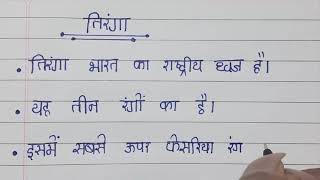 तिरंगा
• तिरंगा भारत का राष्ट्रीय ध्वज है।
• यह तीन रंगों का है।
• इसमें सबसे ऊपर केसरिया रंग